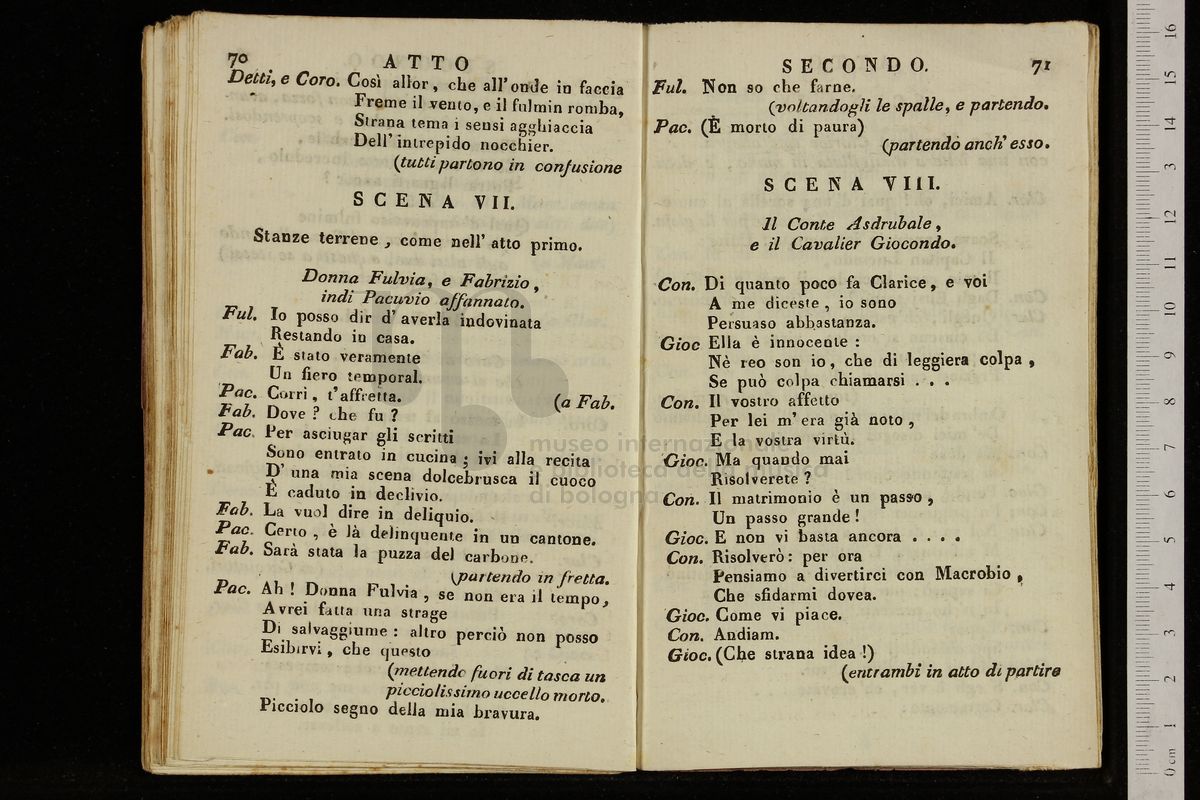 70 ATTO
Detti, e Coro. Così allor, che all' onde in faccia
Freme il vento, e il fulmin romba,
Strana tema i sensi agghiaccia
Dell' intrepido nocchier.
(tutti partono in confusione
SCENA VII.
Stanze terrene, come nell' atto primo.
Donna Fulvia, e Fabrizio,
indi Pacuvio affannato.
Ful. Io posso dir d' averla indovinata
Restando in casa.
Fab. È stato veramente
Un fiero temporal.
Pac. Corri, t'affretta. (a Fab.
Fab. Dove? che fu?
Pac. Per asciugar gli scritti
Sono entrato in cucina; ivi alla recita
D' una mia scena dolcebrusca il cuoco
È caduto in declivio.
Fab. La vuol dire in deliquio.
Pac. Certo, è là delinquente in un cantone.
Fab. Sarà stata la puzza del carbone.
(partendo in fretta.
Pac. Ah! Donna Fulvia, se non era il tempo,
Avrei fatta una strage
Di salvaggiume: altro perciò non posso
Esibirvi, che questo
(mettendo fuori di tasca un
picciolissimo uccello morto.
Picciolo segno della mia bravura.
SECONDO. 71
Ful. Non so che farne.
(voltandogli le spalle, e partendo.
Pac. (È morto di paura)
(partendo anch' esso.
SCENA VIII.
Il Conte Asdrubale,
e il Cavalier Giocondo.
Con. Di quanto poco fa Clarice, e voi
A me diceste, io sono
Persuaso abbastanza.
Gioc Ella è innocente:
Nè reo son io, che di leggiera colpa,
Se può colpa chiamarsi . . .
Con. Il vostro affetto
Per lei m' era già noto,
E la vostra virtù.
Gioc. Ma quando mai
Risolverete?
Con. Il matrimonio è un passo,
Un passo grande!
Gioc. E non vi basta ancora . . . .
Con. Risolverò: per ora
Pensiamo a divertirci con Macrobio,
Che sfidarmi dovea.
Gioc. Come vi piace.
Con. Andiam.
Gioc. (Che strana idea!)
(entrambi in atto di partire
museo internazionale
e biblioteca della musica
di bologna
0 cm 1 2 3 4 5 6 7 8 9 10 11 12 13 14 15 16